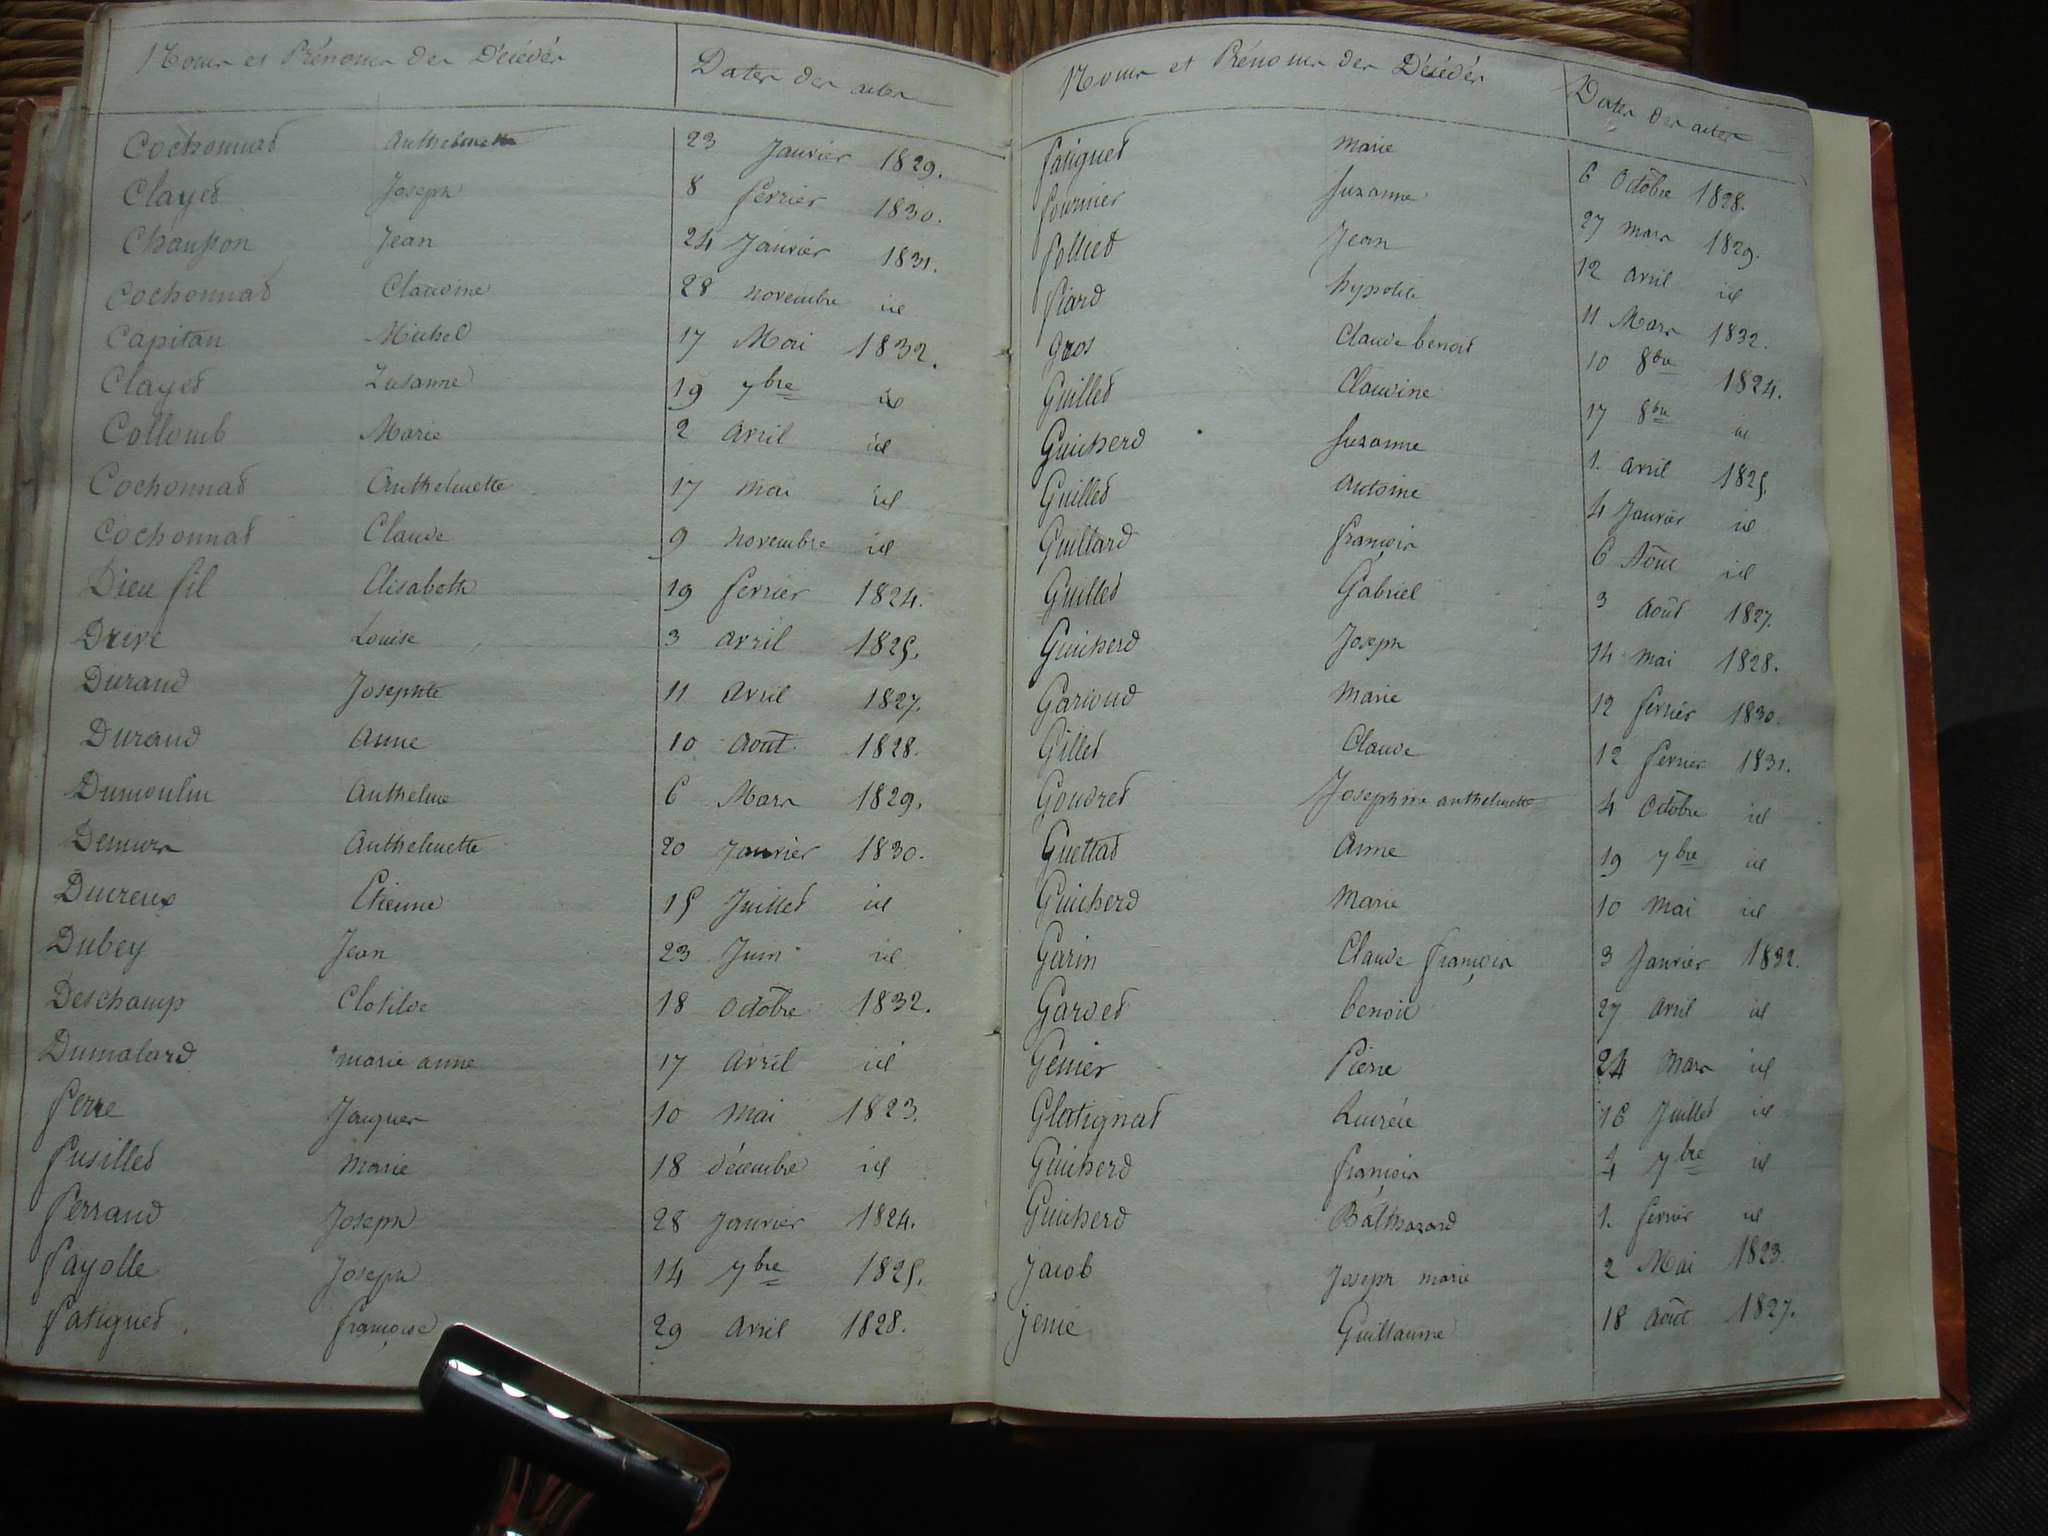 Noms et Prénoms des Décédés Dates des actes
Cochonnat Anthelmette 23 Janvier 1829.
Clayet Joseph 8 fevrier 1830.
Chanpon Jean 24 Janvier 1831.
Cochonnat Claudine 28 novembre id
Capitan Michel 17 Mai 1832.
Clayet Zusanne 19 7bre id
Collomb Marie 2 avril id
Cochonnat Anthelmette 17 mai id
Cochonnat Claude 9 novembre id
Dieu fil Elisabeth 19 fevrier 1824.
Drive Louise 3 avril 1825.
Durand Josephte 11 avril 1827.
Durand Anne 10 Août 1828.
Dumoulin Anthelme 6 Mars 1829.
Demurs Anthelmette 20 Janvier 1830.
Ducreux Etienne 15 Juillet id
Dubey Jean 23 Juin id
Deschamp Clotilde 18 octobre 1832.
Dumolard marie anne 17 avril id
ferre Jacques 10 mai 1823.
fusillet Marie 18 décembre id
ferrand Joseph 28 Janvier 1824.
fayolle Joseph 14 7bre 1825.
fatiguet françoise 29 avril 1828.
Noms et Prénoms des Décédés Dates des actes
fatiguet Marie 6 Octobre 1828.
fournier suzanne 27 mars 1829.
folliet Jean 12 avril id
fiard hypolite 11 Mars 1832.
Gros Claude benoit 10 8bre 1824.
Guillet Claudine 17 8bre id
Guicherd suzanne 1. avril 1825.
Guillet antoine 4 Janvier id
Guillard françois 6 Août id
Guillet Gabriel 3 août 1827.
Guicherd Joseph 14 mai 1828.
Garioud Marie 12 fevrier 1830.
Gillet Claude 12 fevrier 1831.
Goudret Josephine anthelmette 4 octobre id
Guettat Anne 19 7bre id
Guicherd Marie 10 mai id
Garin Claude françois 3 Janvier 1832.
Gardet benoit 27 avril id
Genier Pierre 24 mars id
Glatignat Lucrèce 16 Juillet id
Guicherd françois 4 7bre id
Guicherd Balthazard 1. fevrier id
Jacob Joseph marie 2 Mai 1823.
Jenie Guillaume 18 août 1827.